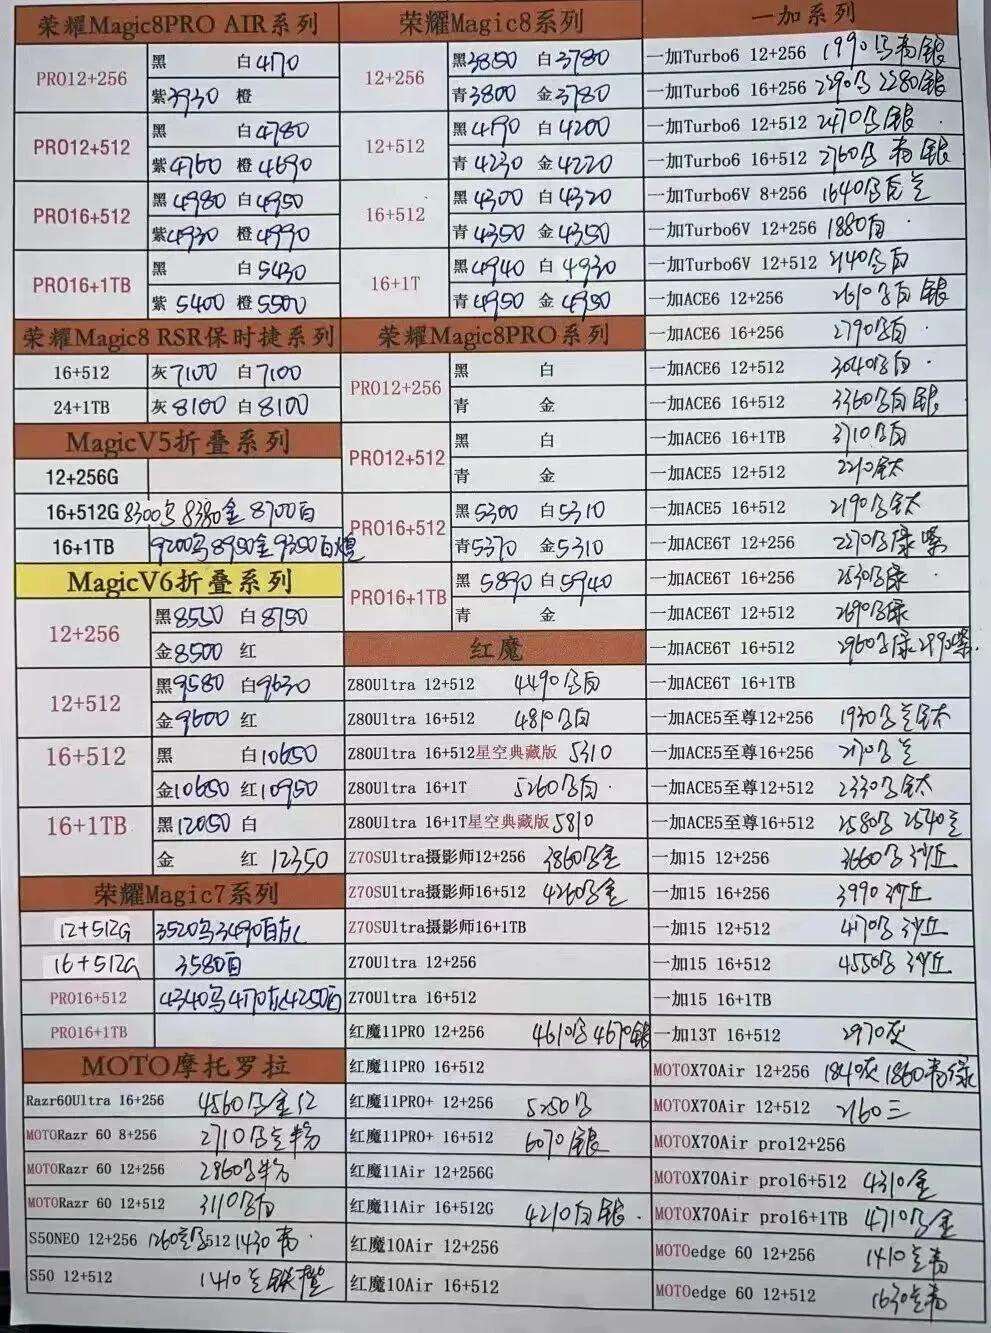 荣耀Magic8PRO AIR系列
PRO12+256
黑 白4170
紫3930 橙
PRO12+512
黑 白4780
紫4760 橙4690
PRO16+512
黑4980 白4950
紫4930 橙4990
PRO16+1TB
黑 白5430
紫5400 橙5500
荣耀Magic8 RSR保时捷系列
16+512 灰7100 白7100
24+1TB 灰8100 白8100
MagicV5折叠系列
12+256G
16+512G 8300乌 8380金 8700白
16+1TB 9200乌8950金9350白
MagicV6折叠系列
12+256
黑8550 白8750
金8500 红
12+512
黑9580 白9630
金9600 红
16+512
黑 白10650
金10650 红10950
16+1TB
黑12050 白
金 红12350
荣耀Magic7系列
12+512G 3520乌3490白灰
16+512G 3580白
PRO16+512 4340乌4170灰4250白
PRO16+1TB
MOTO摩托罗拉
Razr60Ultra 16+256 4560乌金红
MOTORazr 60 8+256 2710乌
MOTORazr 60 12+256 2860乌
MOTORazr 60 12+512 3110乌白
S50NEO 12+256 1260 512 1430青
S50 12+512 1410兰 橙
荣耀Magic8系列
12+256
黑3850 白3780
青3800 金3780
12+512
黑4190 白4200
青4230 金4220
16+512
黑4300 白4320
青4350 金4350
16+1T
黑4940 白4930
青4950 金4950
荣耀Magic8PRO系列
PRO12+256
黑 白
青 金
PRO12+512
黑 白
青 金
PRO16+512
黑5300 白5310
青5370 金5310
PRO16+1TB
黑5890 白5940
青 金
红魔
Z80Ultra 12+512 4490乌白
Z80Ultra 16+512 4810乌白
Z80Ultra 16+512星空典藏版 5310
Z80Ultra 16+1T 5260乌白
Z80Ultra 16+1T星空典藏版 5810
Z70SUltra摄影师12+256 3860乌金
Z70SUltra摄影师16+512 4260乌金
Z70SUltra摄影师16+1TB
Z70Ultra 12+256
Z70Ultra 16+512
红魔11PRO 12+256 4610乌4670银
红魔11PRO 16+512
红魔11PRO+ 12+256 5250乌
红魔11PRO+ 16+512 6070银
红魔11Air 12+256G
红魔11Air 16+512G 4210白银
红魔10Air 12+256
红魔10Air 16+512
一加系列
一加Turbo6 12+256 1990乌青银
一加Turbo6 16+256 2290乌 2280银
一加Turbo6 12+512 2470乌银
一加Turbo6 16+512 2760乌青银
一加Turbo6V 8+256 1640乌白兰
一加Turbo6V 12+256 1880白
一加Turbo6V 12+512 2140乌白
一加ACE6 12+256 2610乌白银
一加ACE6 16+256 2790乌白
一加ACE6 12+512 3040乌白
一加ACE6 16+512 3360乌白银
一加ACE6 16+1TB 3710乌白
一加ACE5 12+512 2210钛
一加ACE5 16+512 2190乌钛
一加ACE6T 12+256 2270乌绿紫
一加ACE6T 16+256 2530乌绿
一加ACE6T 12+512 2690乌绿
一加ACE6T 16+512 2960乌绿2990紫
一加ACE6T 16+1TB
一加ACE5至尊12+256 1930乌兰钛
一加ACE5至尊16+256 2170乌兰
一加ACE5至尊12+512 2330乌钛
一加ACE5至尊16+512 2580乌 2540兰
一加15 12+256 3660乌沙丘
一加15 16+256 3990沙丘
一加15 12+512 4170乌沙丘
一加15 16+512 4550乌沙丘
一加15 16+1TB
一加13T 16+512 2970灰
MOTOX70Air 12+256 1840灰1860青绿
MOTOX70Air 12+512 2160三
MOTOX70Air pro12+256
MOTOX70Air pro16+512 4310金
MOTOX70Air pro16+1TB 4710乌金
MOTOedge 60 12+256 1410兰青
MOTOedge 60 12+512 1630兰青